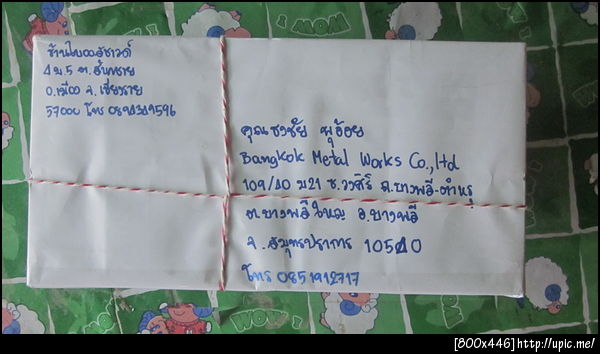 ร้านใบของอัชาวดี
4 ม.5 ต.สันทราย
อ.เมือง จ.เชียงราย
57000 โทร 0894349596
คุณธงชัย พุอ้อย
Bangkok Metal Works Co.,ltd
109/40 ม21 ซ.วศิริ ถ.บางพลี-ตำหรุ
ต.บางพลีใหญ่ อ.บางพลี
จ.สมุทรปราการ 10540
โทร 0851912717
MOM !
WOW !
[800x446]http://upic.me/